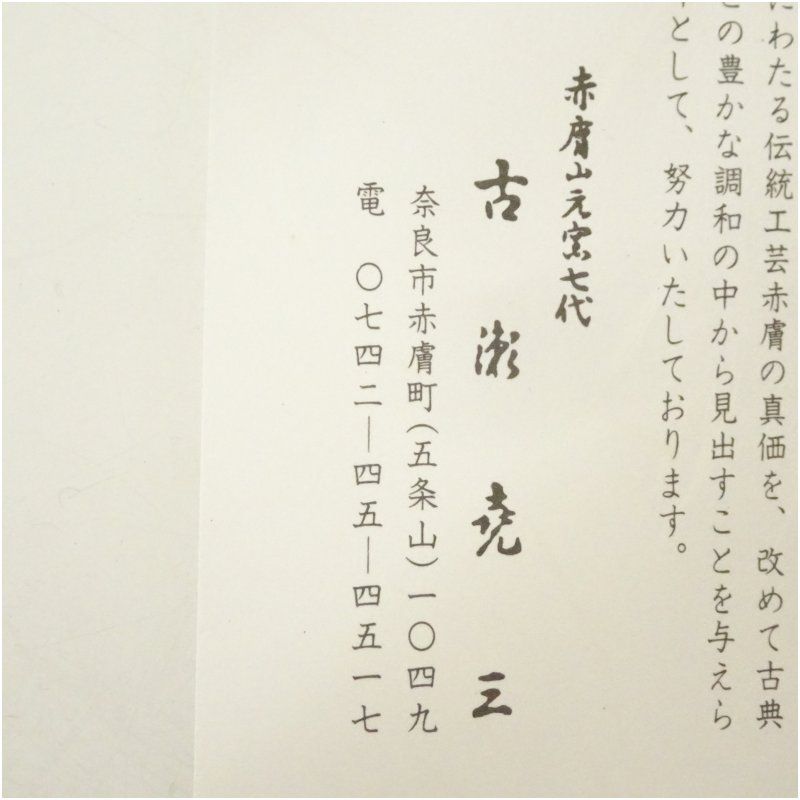 にわたる伝統工芸赤膚の真価を、改めて古典
との豊かな調和の中から見出すことを与えら
として、努力いたしております。
赤膚山元窯七代
古瀬堯三
奈良市赤膚町(五条山)一〇四九
電 〇七四二―四五―四五一七